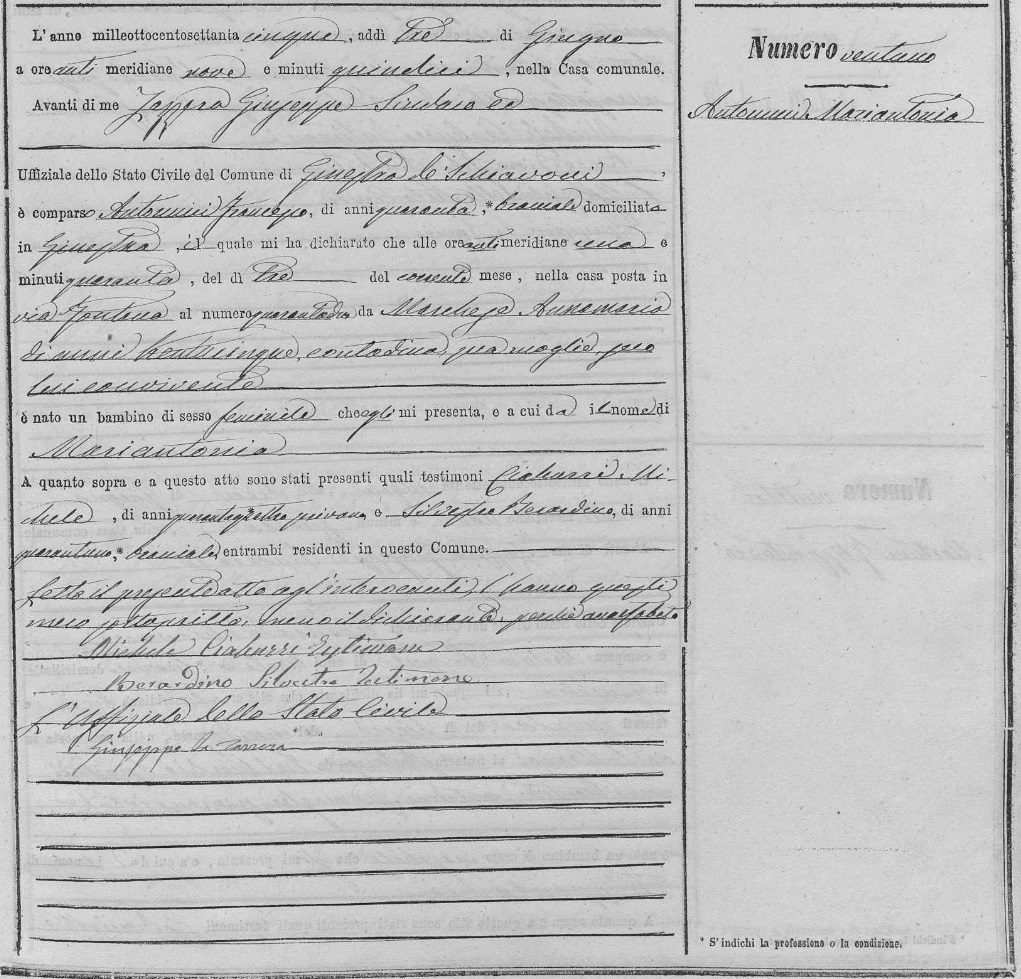 L'anno milleottocentosettanta cinque, addì tre di Giugno
a ore anti meridiane nove e minuti quindici, nella Casa comunale.
Avanti di me Zarrora Giuseppe Sindaco ed
Uffiziale dello Stato Civile del Comune di Ginestra de' Schiavoni,
è comparso Antonucci Francesco, di anni quaranta,* braciale domiciliato
in Ginestra, il quale mi ha dichiarato che alle ore anti meridiane una e
minuti quaranta, del dì tre del corrente mese, nella casa posta in
via Fontana al numero quarantadue da Marchese Annamaria
di anni trentacinque, contadina, sua moglie, seco
lui convivente
è nato un bambino di sesso feminile che egli mi presenta, e a cui da il nome di
Mariantonia
A quanto sopra e a questo atto sono stati presenti quali testimoni Ciabarri Mi-
chele, di anni e Silvestro Berardino, di anni
quarantuno,* braciale, entrambi residenti in questo Comune.
Letto il presente atto agl'intervenuti, l'hanno
meco sottoscritto, meno il dichiarante, perchè analfabeto
Michele Ciabarri Testimone
Berardino Silvestro Testimone
L'Uffiziale dello Stato Civile
Giuseppe
Numero ventuno
Antonucci Mariantonia
* S'indichi la professione o la condizione.